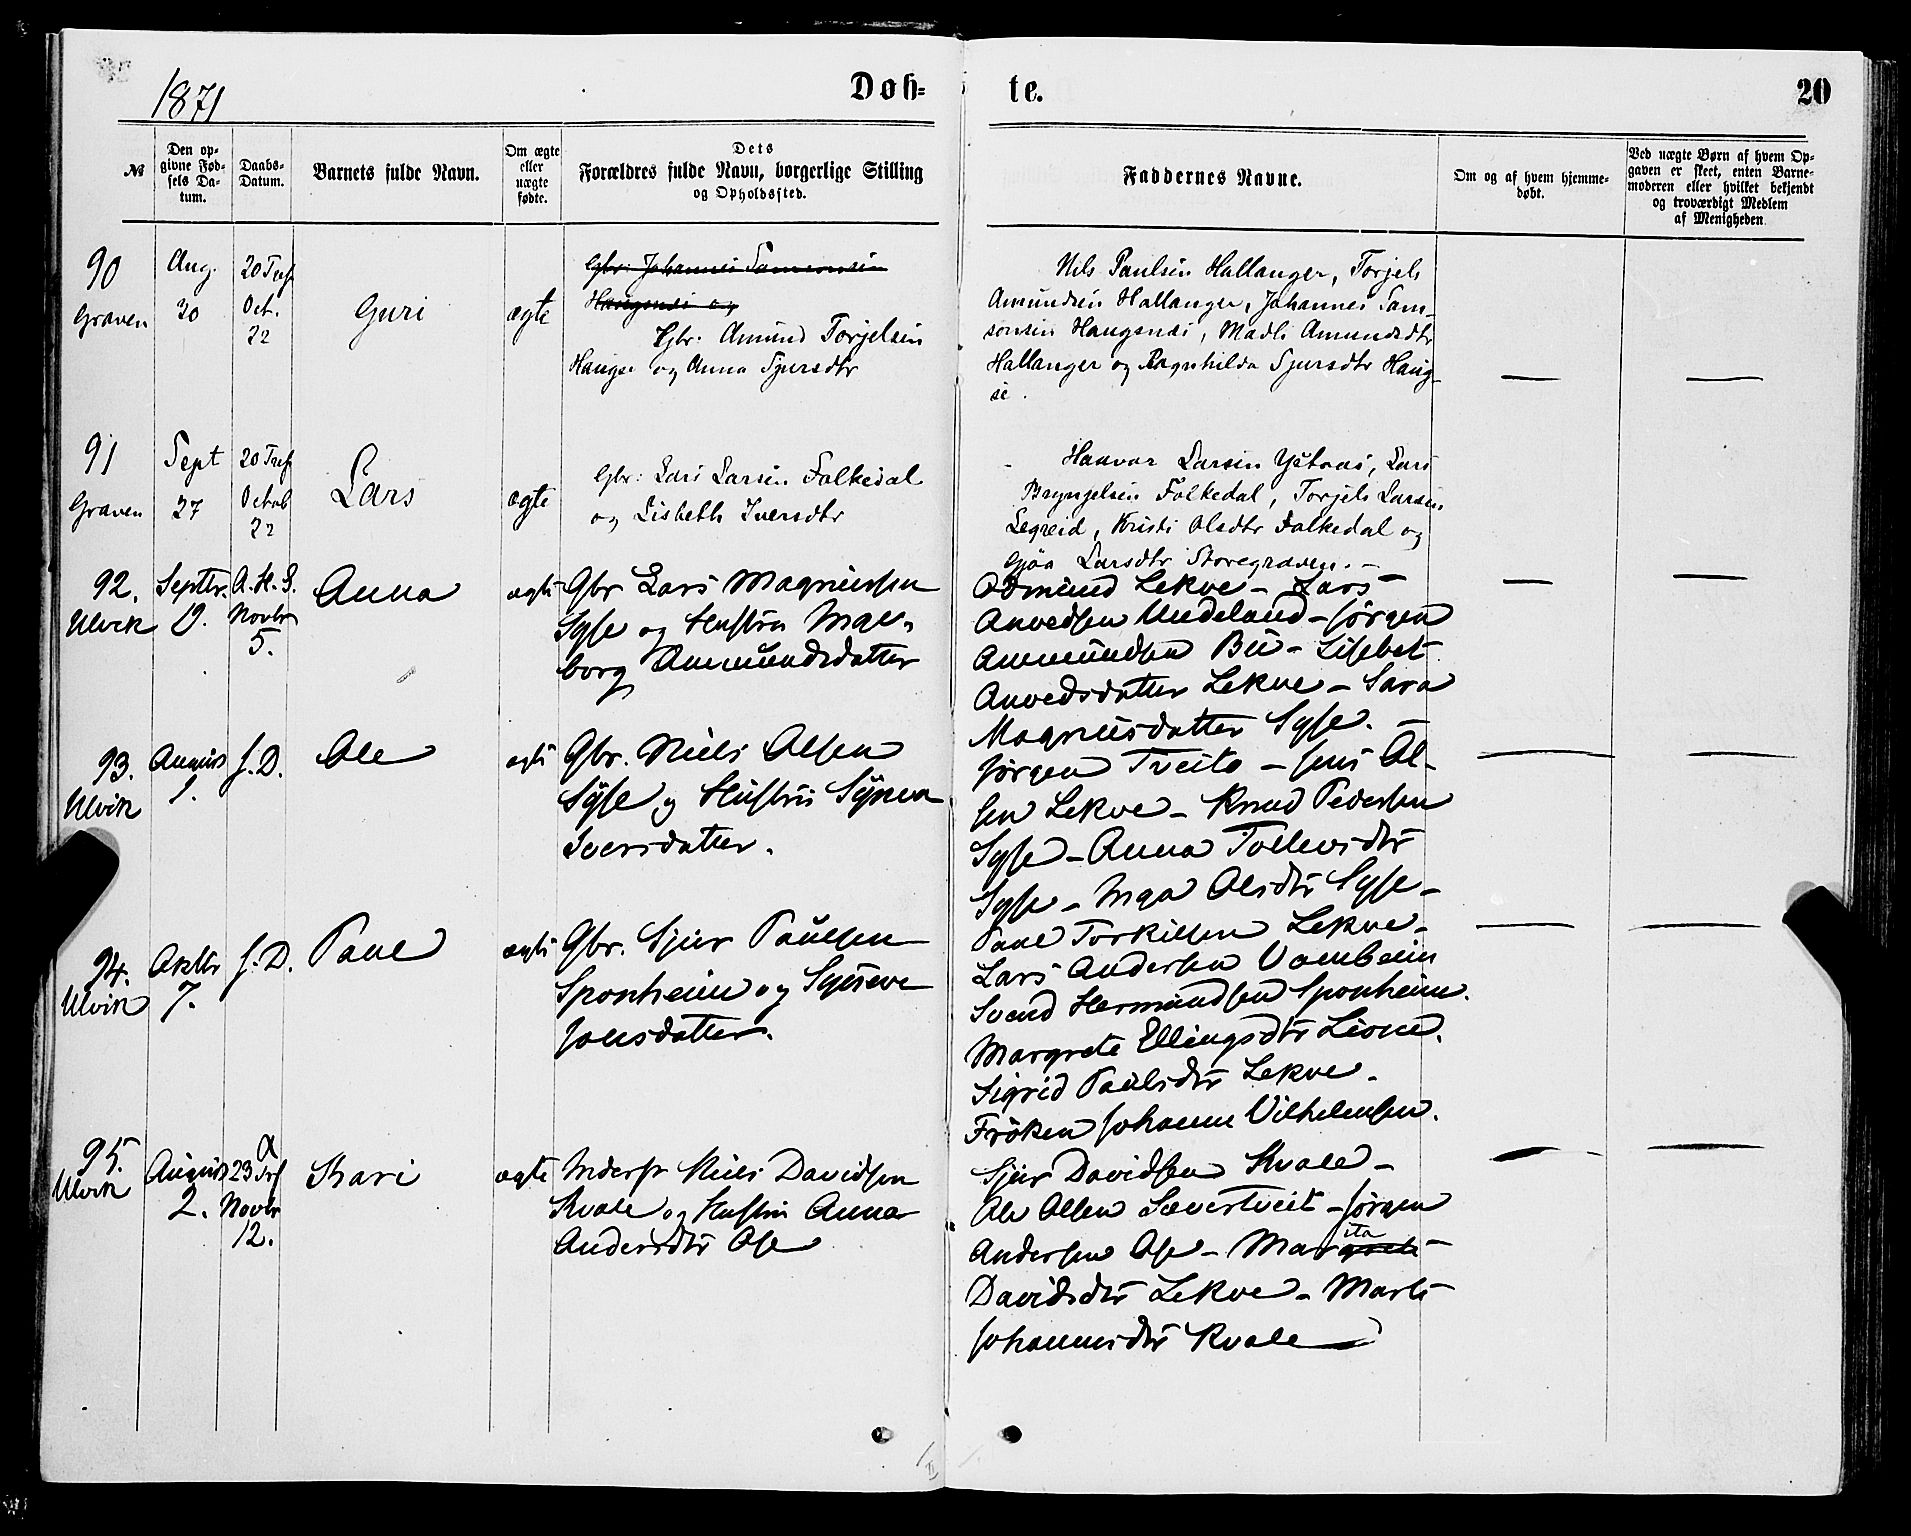 1871
Døb-
te.
20
№
Den op-
givne Fød-
sels Da-
tum.
Daabs-
Datum.
Barnets fulde Navn.
Om ægte
eller
uægte
fødte.
Dets
Forældres fulde Navn, borgerlige Stilling
og Opholdssted.
Faddernes Navne.
Om og af hvem hjemme-
døbt.
Ved uægte Børn af hvem Op-
gaven er skeet, enten Barne-
moderen eller hvilket bekjendt
og troværdigt Medlem
af Menigheden.
90
Graven
Aug.
30
20 Tref
Oct.
22
Guri
ægte
Gbr: Johannes Samsonsen
Haugsnes og
Gbr. Amund Torjelsen
Haugse og Anna Sjursdtr
Nils Paulsen Hallanger, Torjels
Amundsen Hallanger, Johannes Sam-
sonsen Haugsnes, Madli Amundsdtr
Hallanger og Ragnhilda Sjursdtr Haug-
se.
91
Graven
Sept
27
20 Tref
Octob
22
Lars
ægte
Gbr: Lars Larsen Folkedal
og Lisbeth Iversdtr
Haavar Larsen Ystaas, Lars
Bryngelsen Folkedal, Torjels Larsen
Legreid, Kristi Olsdtr Folkedal og
Gjøa Larsdtr Storegraven. -
92.
Ulvik
Septbr.
9.
A. H. G.
Novbr
5.
Anna
ægte
Gbr Lars Magnussen
Syse og Hustru Inge-
borg Ammundsdatter
Odmund Lekve - Lars
Anvedsen Undeland - Jørgen
Ammundsen Bu - Lisbet
Anvedsdatter Lekve - Sara
Magnusdatter Syse. -
93.
Ulvik
August
1.
s. D.
Ole
ægte
Gbr. Niels Olsen
Syse og Hustru Synva
Iversdatter.
Jørgen Tveito - Jens Ol-
sen Lekve - Knud Pedersen
Syse - Anna Tollevsdtr
Syse - Inga Olsdtr Syse -
94.
Ulvik
Oktbr
7.
s. D.
Paul
ægte
Gbr. Sjur Paulsen
Sponheim og Synneve
Jonsdatter.
Paul Torkilsen Lekve -
Lars Andersen Vambeim
Svend Hermundsen Sponheim.
Margrete Ellingsdtr Lione.
Sigrid Paulsdtr Lekve -
Frøken Johanne Vilhelmsen.
95.
Ulvik
August
2.
23 Trf
Novbr
12.
Kari
ægte
Inderst Niels Davidsen
Kvale og Hustru Anna
Andersdtr Ose
Sjur Davidsen Kvale -
Ole Olsen Sævertveit - Jørgen
ita
Andersen Ose - Margrete -
Davidsdtr Lekve - Marte
Johannesdtr Kvale